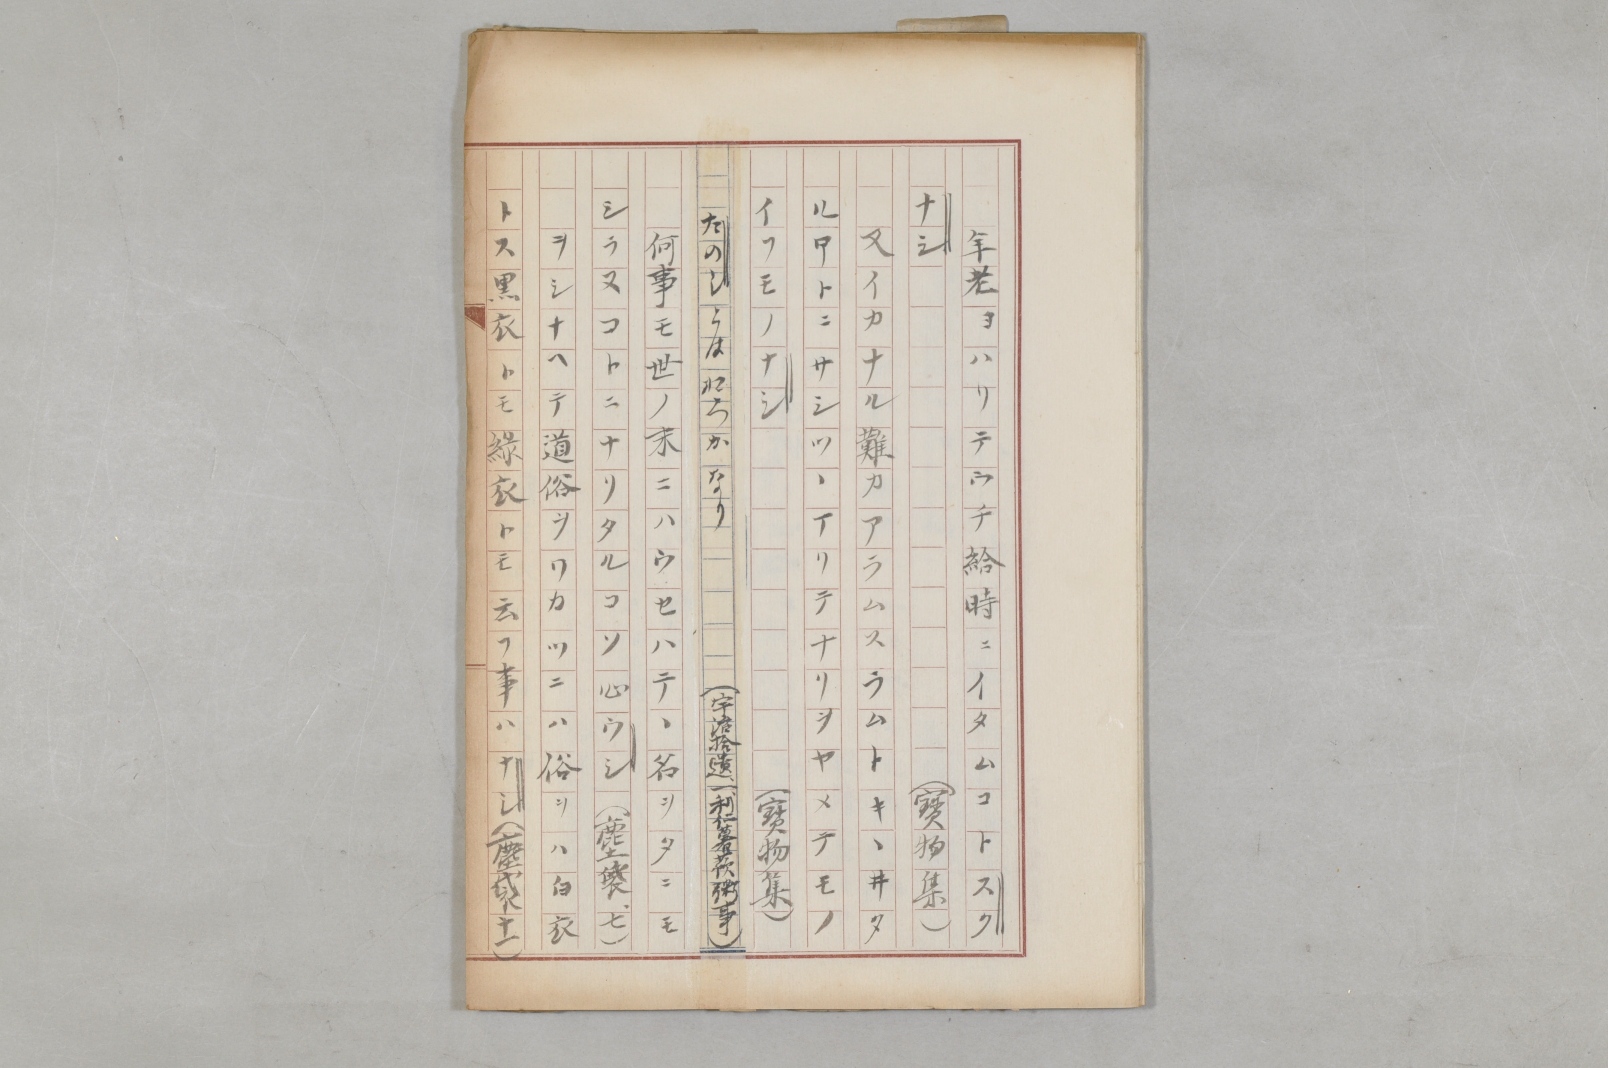 年老ヨハリテウチ給時ニイタムコトスク
ナシ（寶物集）
又イカナル難カアラムスラムトキヽ井タ
ル甲トニサシツヽイリテナリヲヤメテモノ
イフモノナシ（寶物集）
たのしうはおろかなり（宇治拾遺、一、利仁暑蕷粥事）
何事モ世ノ末ニハウセハテヽ名ヲタニモ
シラヌコトニナリタルコソ心ウシ（塵袋、七）
ヲシナヘテ道俗ヲワカツニハ俗ヲハ白衣
トス黒衣トモ緑衣トモ云フ事ハナシ（塵袋、十一）